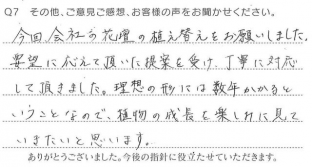 Q7　その他、ご意見ご感想、お客様の声をお聞かせください。
今回会社の花壇の植え替えをお願いしました。
要望に応えて頂いた提案を受け、丁寧に対応
して頂きました。理想の形には数年かかると
いうことなので、植物の成長を楽しみに見て
いきたいと思います。
ありがとうございました。今後の指針に役立たせていただきます。